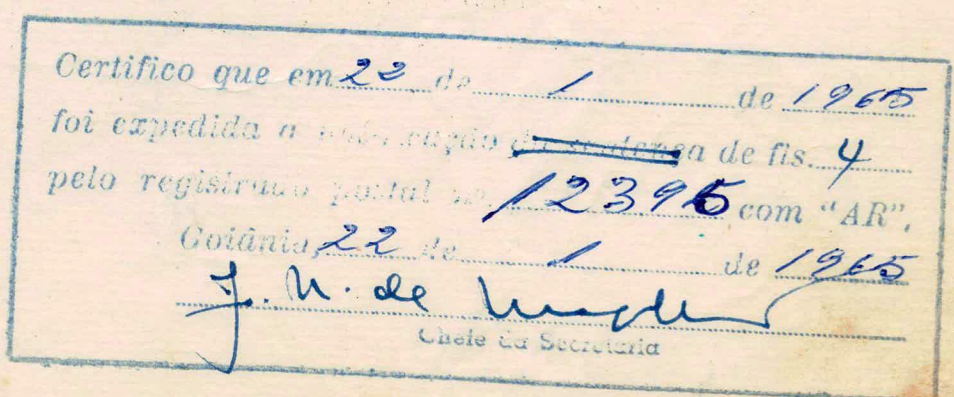 Certifico que em 22 de 1 de 1965
foi expedida a notificação da sentença de fls. 4
pelo registrado postal no 12395 com "AR".
Goiânia, 22 de 1 de 1965
J. N. de
Chefe da Secretaria